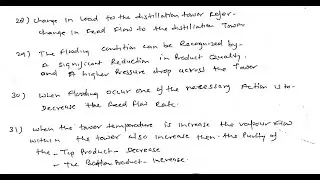 28) Change in Load to the distillation tower Refer-
change in Feed Flow to the distillation Tower
29) The Flooding Condition can be Recognized by-
A Significant Reduction in Product Quality.
and A higher Pressure drop across the Tower
30) When Flooding occur one of the necessary Action is to-
Decrease the Feed Flow Rate.
31) when the tower temperature is increase the vapour flow
within the tower also increase then the Purity of
the - Top Product - Decrease
- The Bottom Product - Increase.